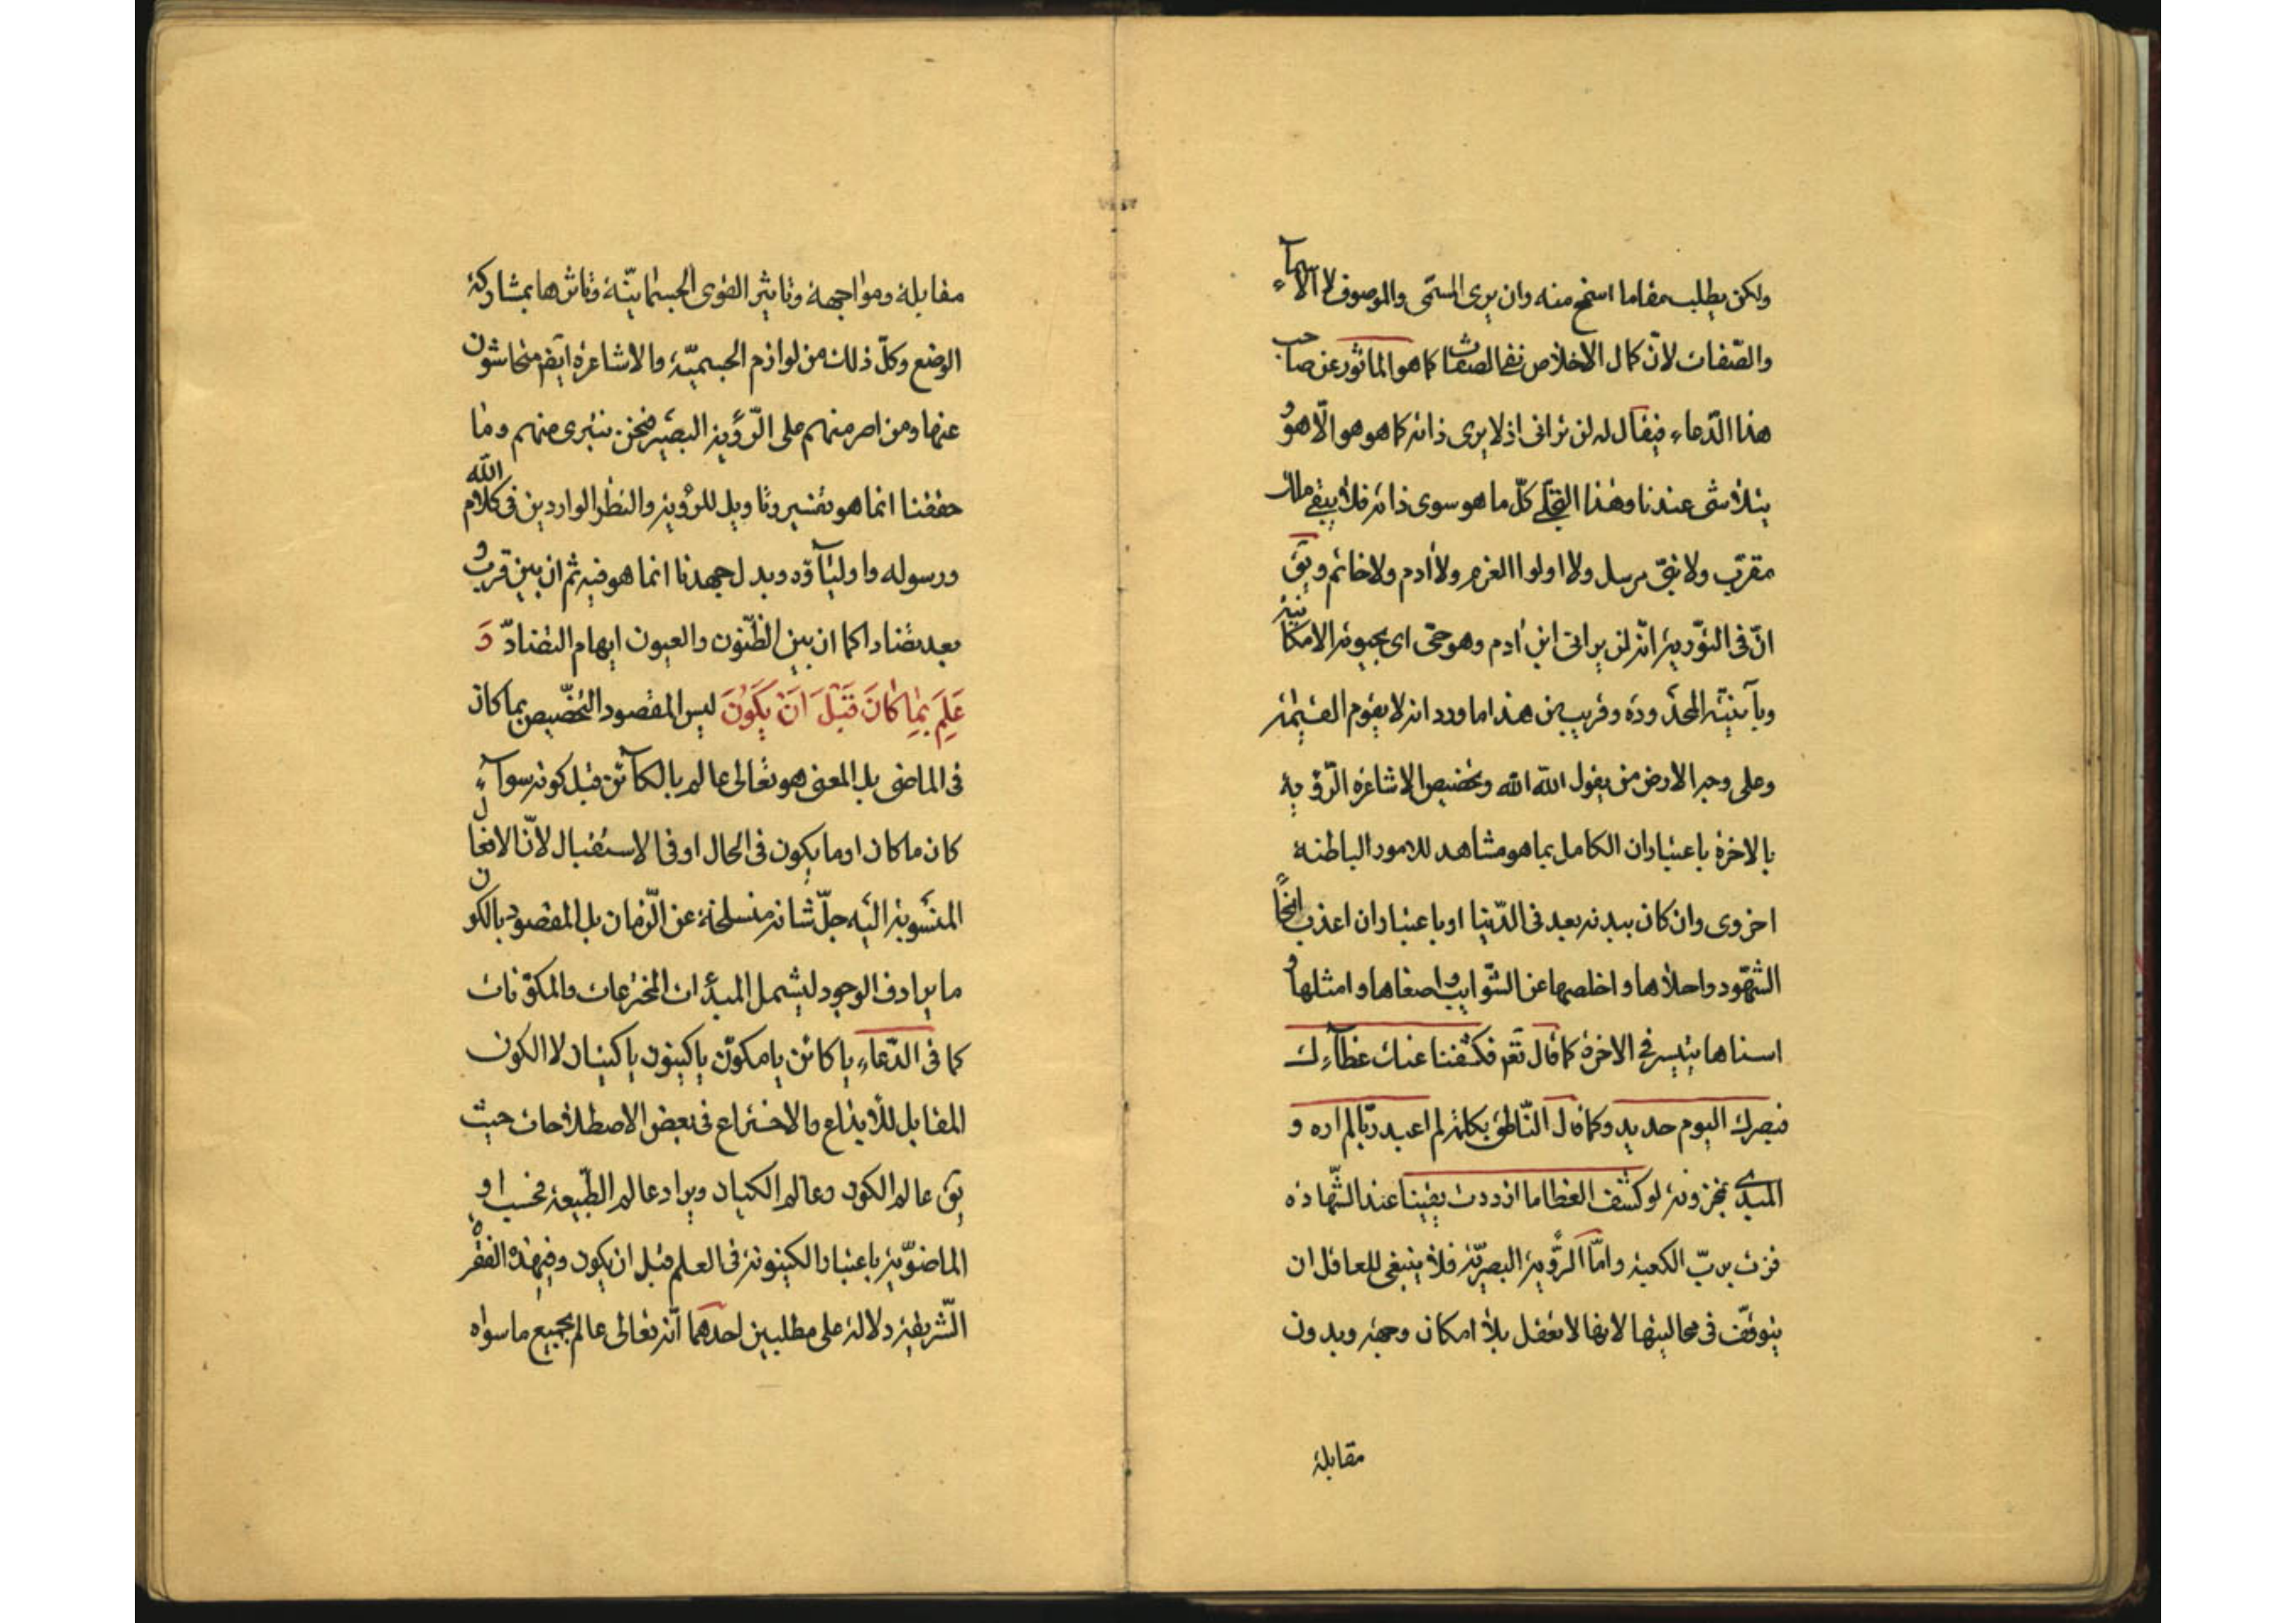 ولكن يطلب مقاما اشمخ منه وان يرى المسمّى والموصوف لا الاسمآء
والصّفات لانّ كمال الاخلاص نفى الصفات كما هو الماثور عن صاحب
هذا الدّعاء فيقال له لن ترانى اذ لا يرى ذاته كما هو هو الّا هو و
يتلاشى عند نا وهذا التجلّى كلّ ما هو سوى ذاته فلا يبقى ملك
مقرّب ولا نبىّ مرسل ولا اولوا العزم ولا ادم ولا خاتم ويق
انّ فى التّوريه انّه لن يرانى ابن ادم وهو حىّ اى بحيوته الامكانيّة
وبآنيّته المحدودة وقريب من هذا ما ورد انه لا يقوم القيٰمة
وعلى وجه الارض من يقول الله الله وتخصيص الاشاعرة الرّؤية
بالاخرة باعتبار ان الكامل بما هو مشاهد للامور الباطنة
اخروى وان كان ببدنه بعد فى الدّنيا او باعتبار ان اعذب انحآ
الشّهود واحلاها واخلصها عن الشّوايب واصفاها وامثلها و
اسناها يتيسر فى الاخرة كما قال تعم فكشفنا عنك غطآءك
فبصرك اليوم حديد وكما قال النّاطق بكلمة لم اعبد ربّا لم اره و
المبدى نخزونه لو كشف الغطا ما ازددت يقينا عند الشّهادة
فزت بربّ الكعبة وامّا الرّؤية البصريّة فلا ينبغى للعاقل ان
يتوقّف فى محاليتها لانها لا تعقل بلا امكان وجهة وبدون
مقابلة
مقابلة ومواجهة وتاثير القوى الجسمانيّة وتاثرها بمشاركة
الوضع وكلّ ذلك من لوازم الجسميّة والاشاعرة ايضم متحاشون
عنها ومن اصر منهم على الرّؤية البصريّة فنحن نتبرى منهم وما
حققنا انما هو تفسير وتاويل للرؤية والنظر الواردين فى كلام الله
ورسوله واوليآؤه وبذل جهدنا انما هو فيه ثم ان بين قرب و
بعد تضادا كما ان بين الظّنون والعيون ايهام التضادّ وَ
عَلِمَ بِمٰا كَانَ قَبْلَ اَنْ يَكُونَ ليس المقصود التخصيص بما كان
فى الماضى بل المعنى هو تعالى عالم بالكآئن قبل كونه سوآء
كان ما كان او ما يكون فى الحال او فى الاستقبال لانّ الافعال
المنسوبة اليه جلّ شانه منسلخة عن الزّمان بل المقصود بالكون
ما يرادف الوجود ليشمل المبدعات المخترعات والمكوّنات
كما فى الدّعاء يا كائن يا مكوّن يا كينون يا كينان لا الكون
المقابل للابداع والاختراع فى بعض الاصطلاحات حيث
يق عالم الكون وعالم الكيان ويراد عالم الطّبيعة فحسب او
الماضويّة باعتبار الكينونة فى العلم قبل ان يكون وفى هذه الفقرة
الشّريفة دلالة على مطلبين احدهما انّه تعالى عالم بجميع ما سواه